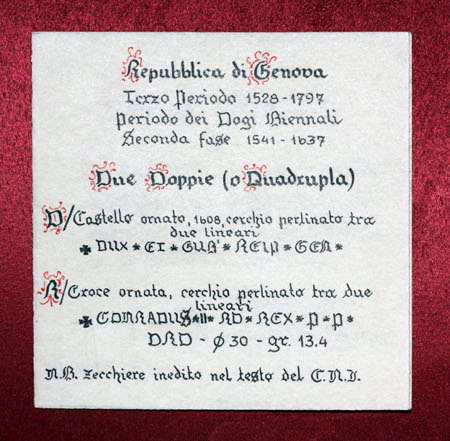 Repubblica di Genova
Terzo Periodo 1528-1797
Periodo dei Dogi Biennali
Seconda fase 1541-1637
Due Doppie (o Quadrupla)
D/Castello ornato, 1608, cerchio perlinato tra
due lineari
✠ DUX * ET * GUB' * REIP * GEN *
R/Croce ornata, cerchio perlinato tra due
lineari
✠ CONRADUS * II * RO * REX * P * P *
ORO - Ø 30 - gr. 13.4
N.B. Zecchiere inedito nel testo del C.N.I.